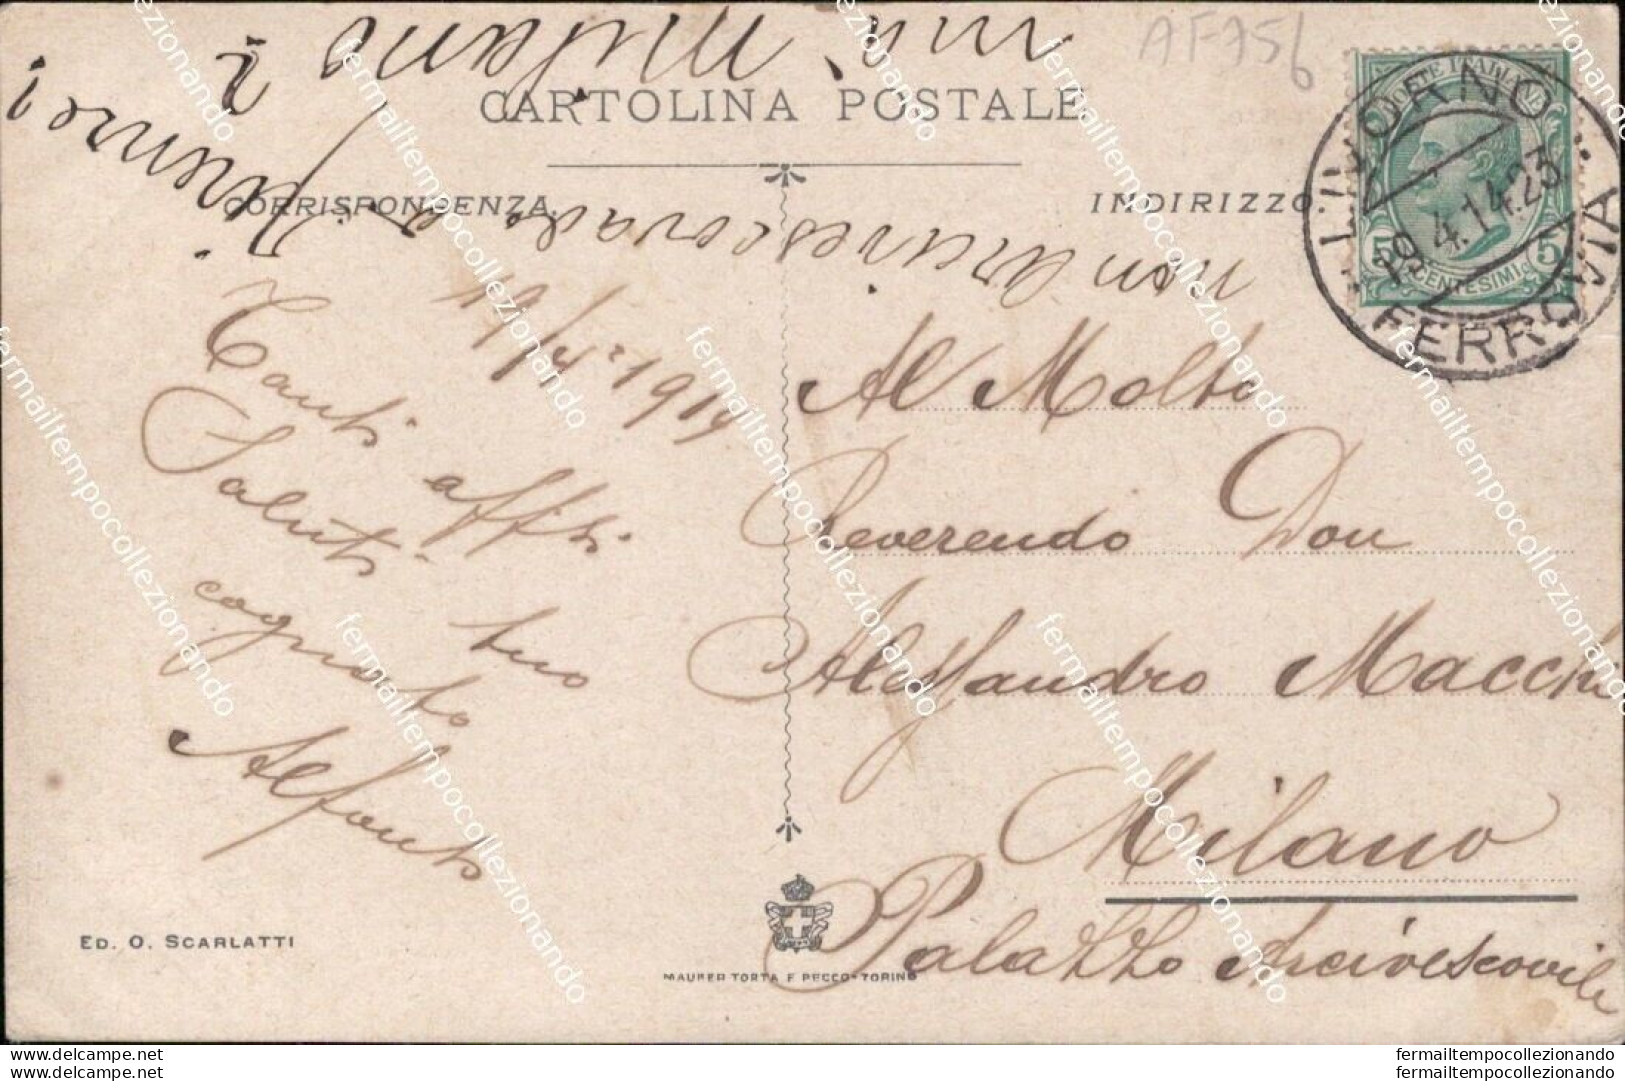 AF756
CARTOLINA POSTALE
CORRISPONDENZA.
INDIRIZZO.
LIVORNO
29.4.14.23
FERROVIA
POSTE ITALIANE
5
CENTESIMI
Al Molto
Reverendo Don
Alessandro Macchi
Milano
Palazzo Arcivescovile
Tanti affti
Saluti tuo
cognato
Alfonso
non arcivescovado
ED. O. SCARLATTI
MAURER TORTA E PECCO-TORINO
fermailtempocollezionando
www.delcampe.net
www.delcampe.net
fermailtempocollezionando
fermailtempocollezionando